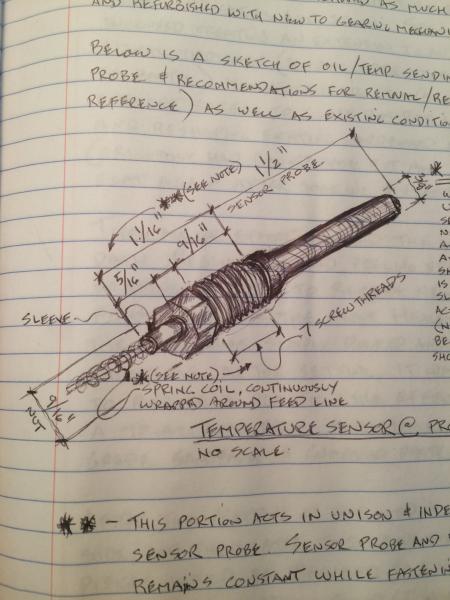 AND REFURBISHED WITH NEW TO GEARING MECHANI
BELOW IS A SKETCH OF OIL/TEMP. SENDIN
PROBE & RECOMMENDATIONS FOR REMVAL/RE
REFERENCE) AS WELL AS EXISTING CONDITION
** (SEE NOTE)
1 1/2"
SENSOR PROBE
3/8"
1 1/16"
9/16"
5/16"
SLEEVE
7 SCREW THREADS
* (SEE NOTE)
SPRING COIL, CONTINUOUSLY
WRAPPED AROUND FEED LINE
9/16"
NUT
TEMPERATURE SENSOR @ PRO
NO SCALE.
** - THIS PORTION ACTS IN UNISON & INDE
SENSOR PROBE. SENSOR PROBE AND
REMAINS CONSTANT WHILE FASTENIN